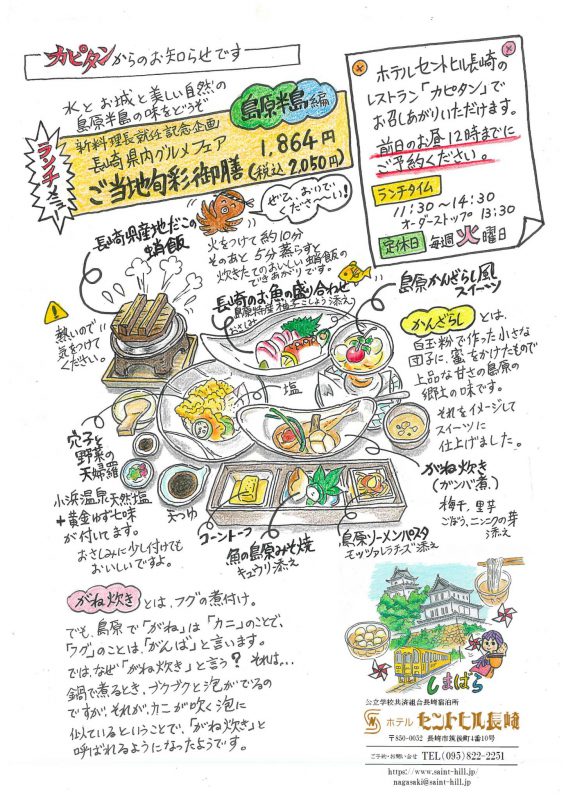 カピタンからのお知らせです
水とお城と美しい自然の
島原半島の味をどうぞ
島原半島編
ランチメニュー
新料理長就任記念企画
長崎県内グルメフェア
ご当地旬彩御膳
1,864円
(税込 2,050円)
ホテルセントヒル長崎の
レストラン「カピタン」で
お召しあがりいただけます。
前日のお昼12時までに
ご予約ください。
ランチタイム
11:30〜14:30
オーダーストップ 13:30
定休日 毎週火曜日
ぜひ、おいで
くださ〜い!
長崎県産地だこの
蛸飯
火をつけて約10分
そのあと5分蒸らすと
炊きたてのおいしい蛸飯の
できあがりです。
熱いので
気をつけて
ください。
長崎のお魚の盛り合わせ
島原特産 柚子こしょう添え
おさしみ
島原かんざらし風
スイーツ
かんざらし とは、
白玉粉で作った小さな
団子に、蜜をかけたもので
上品な甘さの島原の
郷土の味です。
それをイメージして
スイーツに
仕上げました。
塩
穴子と
野菜の
天婦羅
小浜温泉天然塩
+黄金ゆず七味
が付いてます。
おさしみに少し付けても
おいしいですよ。
天つゆ
コーントーフ
魚の島原みそ焼
キュウリ添え
島原ソーメンパスタ
モッツァレラチーズ添え
がね炊き
(ガンバ煮)
梅干、里芋
ごぼう、ニンニクの芽
添え
がね炊き とは、フグの煮付け。
でも、島原で「がね」は「カニ」のことで、
「フグ」のことは、「がんば」と言います。
では、なぜ「がね炊き」と言う? それは…
鍋で煮るとき、ブクブクと泡がでるの
ですが、それが、カニが吹く泡に
似ているということで、「がね炊き」と
呼ばれるようになったようです。
しまばら
公立学校共済組合長崎宿泊所
ホテル セントヒル長崎
〒850-0052 長崎市筑後町4番10号
ご予約・お問い合せ TEL(095)822-2251
https://www.saint-hill.jp/
nagasaki@saint-hill.jp